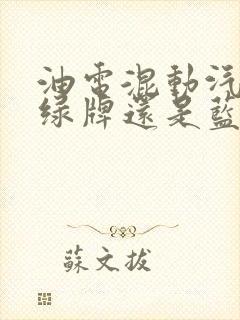 油電混動汽
綠牌還是藍
蘇文拔